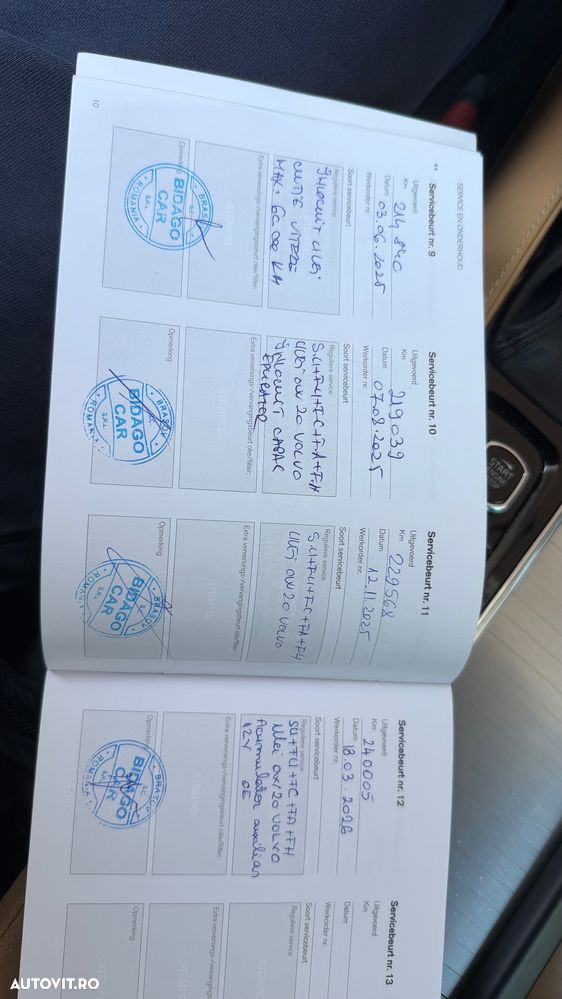 SERVICE EN ONDERHOUD
Servicebeurt nr. 9
Uitgevoerd
Km 214840
Datum 03.06.2025
Werkorder nr.
Soort servicebeurt
Reguliere service
ÎNLOCUIT ULEI
CUTIE VITEZE
MAX. 60.000 KM
Extra verversings-/vervangingsbeurt olie/filter:
STEMPEL
Opmerking
BRASOV
BIDAGO
CAR
S.R.L.
ROMANIA
Servicebeurt nr. 10
Uitgevoerd
Km 219039
Datum 07.08.2025
Werkorder nr.
Soort servicebeurt
Reguliere service
S.U+FU+FC+FA+FH
ULEI 0W20 VOLVO
ÎNLOCUIT CAPAC
Extra verversings-/vervangingsbeurt olie/filter:
STEMPEL
Opmerking
BRASOV
BIDAGO
CAR
S.R.L.
ROMANIA
Servicebeurt nr. 11
Uitgevoerd
Km 229568
Datum 12.11.2025
Werkorder nr.
Soort servicebeurt
Reguliere service
S.U+FU+FC+FA+FH
ULEI 0W20 VOLVO
Extra verversings-/vervangingsbeurt olie/filter:
STEMPEL
Opmerking
BRASOV
BIDAGO
CAR
ROMANIA
10
Servicebeurt nr. 12
Uitgevoerd
Km 240005
Datum 18.03.2026
Werkorder nr.
Soort servicebeurt
Reguliere service
SU+FU+FC+FA+FH
Ulei 0W20 VOLVO
Acumulator auxiliar
12V OE
Extra verversings-/vervangingsbeurt olie/filter:
STEMPEL
Opmerking
BRASOV
BIDAGO
CAR
ROMANIA
Servicebeurt nr. 13
Uitgevoerd
Km
Datum
Werkorder nr.
Soort servicebeurt
Reguliere service
Extra verversings-/vervangingsbeurt olie/filter:
STEMPEL
Opmerking
START
ENGINE
STOP
AUTOVIT.RO